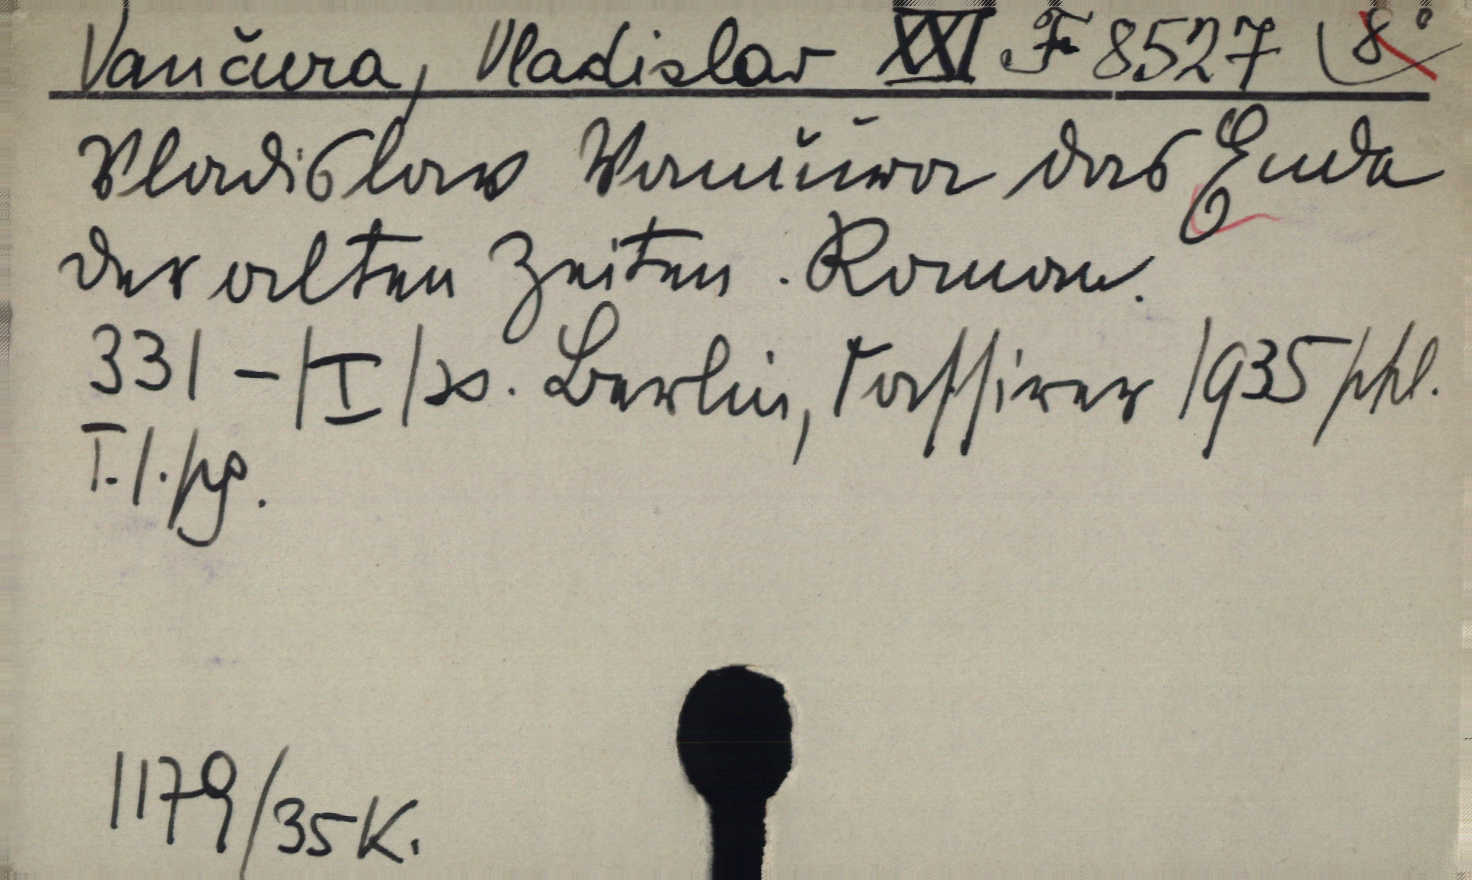 Vančura, Vladislav XXI F 8527 8°
Vladislav Vančura das Ende
der alten Zeiten. Roman.
331 - |I| S. Berlin, Cassirer 1935
T. l. pg.
1179/35 K.